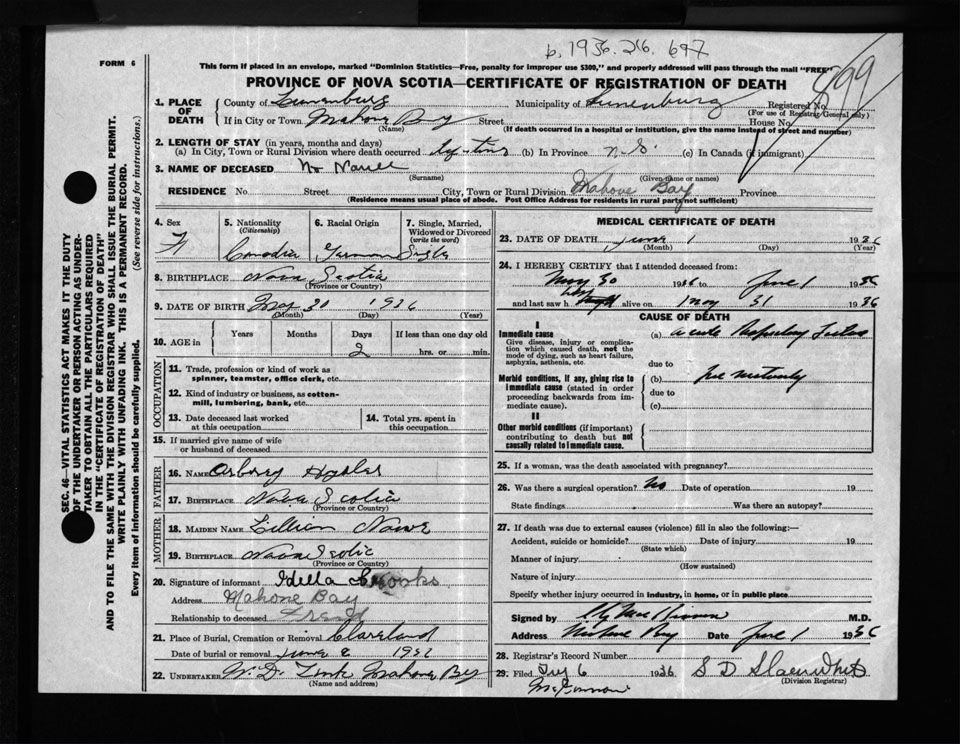 b. 1936. 26. 697
FORM 6
This form if placed in an envelope, marked "Dominion Statistics—Free, penalty for improper use $300," and properly addressed will pass through the mail "FREE"
PROVINCE OF NOVA SCOTIA—CERTIFICATE OF REGISTRATION OF DEATH
899
1. PLACE OF DEATH
County of Lunenburg Municipality of Lunenburg Registered No.
(For use of Registrar General only)
If in City or Town Mahone Bay Street House No.
(Name) (If death occurred in a hospital or institution, give the name instead of street and number)
2. LENGTH OF STAY (in years, months and days)
(a) In City, Town or Rural Division where death occurred (b) In Province N.S. (c) In Canada (if immigrant)
3. NAME OF DECEASED No Name
(Surname) (Given name or names)
RESIDENCE No. Street City, Town or Rural Division Mahone Bay Province
(Residence means usual place of abode. Post Office Address for residents in rural parts not sufficient)
4. Sex F
5. Nationality (Citizenship) Canadian
6. Racial Origin German
7. Single, Married, Widowed or Divorced (write the word) Single
8. BIRTHPLACE Nova Scotia
(Province or Country)
9. DATE OF BIRTH May 30 1936
(Month) (Day) (Year)
10. AGE in Years Months Days If less than one day old
2 hrs. or min.
OCCUPATION
11. Trade, profession or kind of work as spinner, teamster, office clerk, etc.
12. Kind of industry or business, as cotton-mill, lumbering, bank, etc.
13. Date deceased last worked at this occupation
14. Total yrs. spent in this occupation
15. If married give name of wife or husband of deceased
FATHER
16. NAME
17. BIRTHPLACE Nova Scotia
(Province or Country)
MOTHER
18. MAIDEN NAME Lillian
19. BIRTHPLACE Nova Scotia
(Province or Country)
20. Signature of informant Idella Crooks
Address Mahone Bay
Relationship to deceased Friend
21. Place of Burial, Cremation or Removal Clareland
Date of burial or removal June 193
22. UNDERTAKER W. D. Zink Mahone Bay
(Name and address)
MEDICAL CERTIFICATE OF DEATH
23. DATE OF DEATH June 1 1936
(Month) (Day) (Year)
24. I HEREBY CERTIFY that I attended deceased from:
May 30 1936 to June 1 1936
and last saw h alive on May 31 1936
CAUSE OF DEATH
I
Immediate cause
Give disease, injury or complication which caused death, not the mode of dying, such as heart failure, asphyxia, asthenia, etc.
(a) acute Respiratory Failure
due to
Morbid conditions, if any, giving rise to immediate cause (stated in order proceeding backwards from immediate cause).
(b) Prematurity
due to
(c)
II
Other morbid conditions (if important) contributing to death but not causally related to immediate cause.
25. If a woman, was the death associated with pregnancy?
26. Was there a surgical operation? No Date of operation 19
State findings Was there an autopsy?
27. If death was due to external causes (violence) fill in also the following:—
Accident, suicide or homicide? Date of injury 19
(State which)
Manner of injury
(How sustained)
Nature of injury
Specify whether injury occurred in industry, in home, or in public place
Signed by M.D.
Address Mahone Bay Date June 1 1936
28. Registrar's Record Number
29. Filed 6 1936 S D
(Division Registrar)
SEC. 46—VITAL STATISTICS ACT MAKES IT THE DUTY
OF THE UNDERTAKER OR PERSON ACTING AS UNDERTAKER "TO OBTAIN ALL THE PARTICULARS REQUIRED
IN THE "CERTIFICATE OF REGISTRATION OF DEATH"
AND TO FILE THE SAME WITH THE DIVISION REGISTRAR WHO SHALL ISSUE THE BURIAL PERMIT.
WRITE PLAINLY WITH UNFADING INK. THIS IS A PERMANENT RECORD.
Every item of information should be carefully supplied. (See reverse side for instructions.)